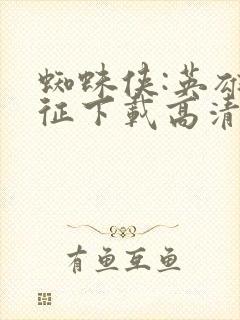 蜘蛛侠:英雄
征下载高清
有鱼互鱼